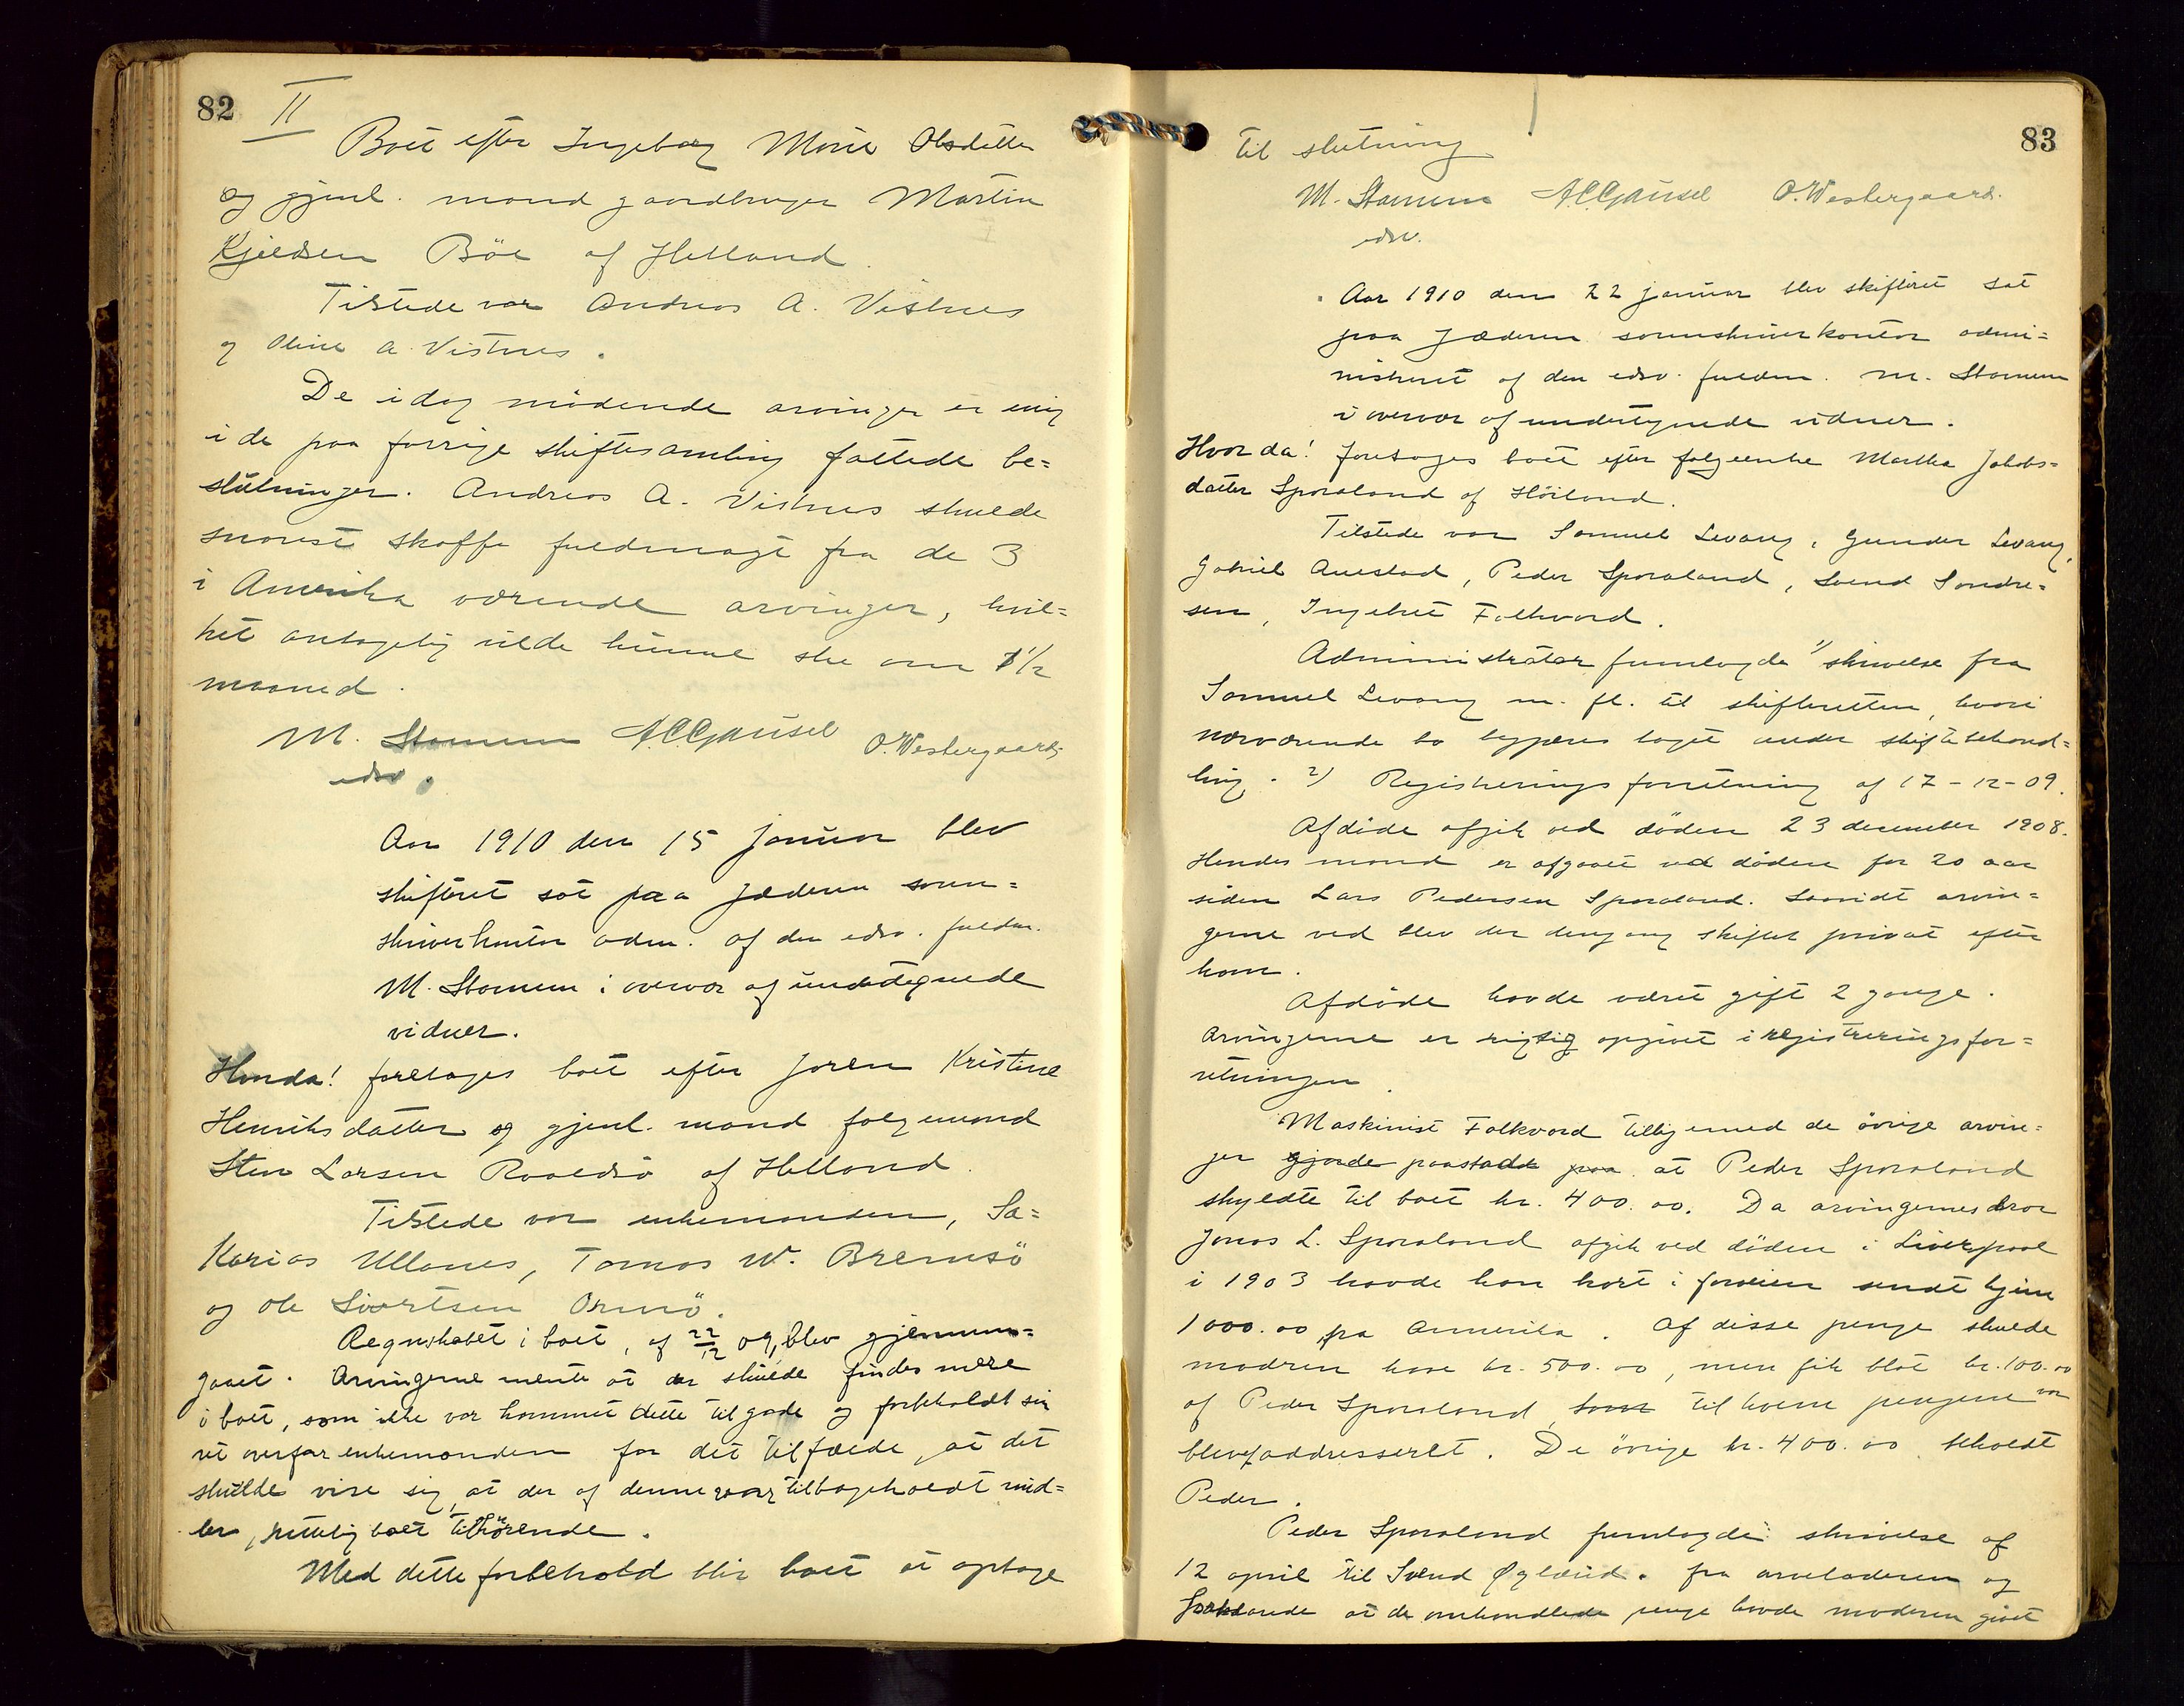 82
II
Boet efter Ingeborg Marie Olsdatter
og gjenl. mand gaardbruger Martin
Kjeldsen Böe af Hetland.
Tilstede var Andreas A. Vistnes
og Oline A. Vistnes.
De idag mödende arvinger er enig
i de paa forrige skiftesamling fattede be=
slutninger. Andreas A. Vistnes skulde
snarest skaffe fuldmagt fra de 3
i Amerika værende arvinger, hvil=
ket antagelig vilde kunne ske om 1½
maaned.
M. Stamnes A.C. Gausel O. Westergaard.
edsv.
Aar 1910 den 15 januar blev
skifteret sat paa Jæderen soren=
skriverkontor adm. af den edsv. fuldm.
M. Stamnes i overvær af undertegnede
vidner.
Hvorda! foretoges boet efter Joren Kristine
Henriksdatter og gjenl. mand folgemand
Sten Larsen Roaldsö af Hetland.
Tilstede var enkemanden, Sa=
karias Ullenes, Tomas W. Bremsö
og Ole Sivertsen Ormö.
Regnskabet i boet, af 22/12 09, blev gjennem=
gaaet. Arvingerne mente at der skulde findes mere
i boet, som ikke var kommet dette tilgode og forbeholdt sig
ret overfor enkemanden for det tilfælde, at det
skulde vise sig, at der af denne var tilbageholdt mid=
ler, rettelig boet tilhörende.
Med dette forbehold blir boet at optage
83
til slutning
M. Stamnes A.C. Gausel O. Westergaard.
edsv.
Aar 1910 den 22 januar blev skifteret sat
paa Jæderen sorenskriverkontor admi=
nistreret af den edsv. fuldm. M. Stamnes
i overvær af undertegnede vidner.
Hvorda! foretoges boet efter folgeenke Martha Jakobs=
datter Sporaland af Höiland.
Tilstede var Samuel Levang, Gunder Levang,
Gabriel Auestad, Peder Sporaland, Svend Sondre=
sen, Ingebret Folkvord.
Administrator fremlagde 1) skrivelse fra
Samuel Levang m. fl. til skifteretten, hvori
nærværende bo begjæres taget under skiftebehand=
ling. 2) Registreringsforretning af 17-12-09.
Afdöde afgik ved döden 23 december 1908.
Hendes mand er afgaaet ved döden for 20 aar
siden Lars Pedersen Sporaland. Saavidt arvin=
gerne ved blev der dengang skiftet privat efter
ham.
Afdöde havde været gift 2 gange.
Arvingerne er rigtig opgivet i registreringsfor=
retningen.
Maskinist Folkvord tilligemed de övrige arvin=
ger gjorde paastadt paa at Peder Sporaland
skyldte til boet kr. 400.00. Da arvingernes bror
Jonas L. Sporaland afgik ved döden i Liverpool
i 1903 havde han kort i forveien sendt hjem
1000.00 fra Amerika. Af disse penge skulde
modren have kr. 500.00, men fik blot kr. 100.00
af Peder Sporaland, som til hvem pengene var
blevet addresseret. De övrige kr. 400.00 beholdt
Peder.
Peder Sporaland fremlagde skrivelse af
12 april til Svend Öglænd. fra arveladeren og
forklarede at de omhandlede penge havde moderen givet